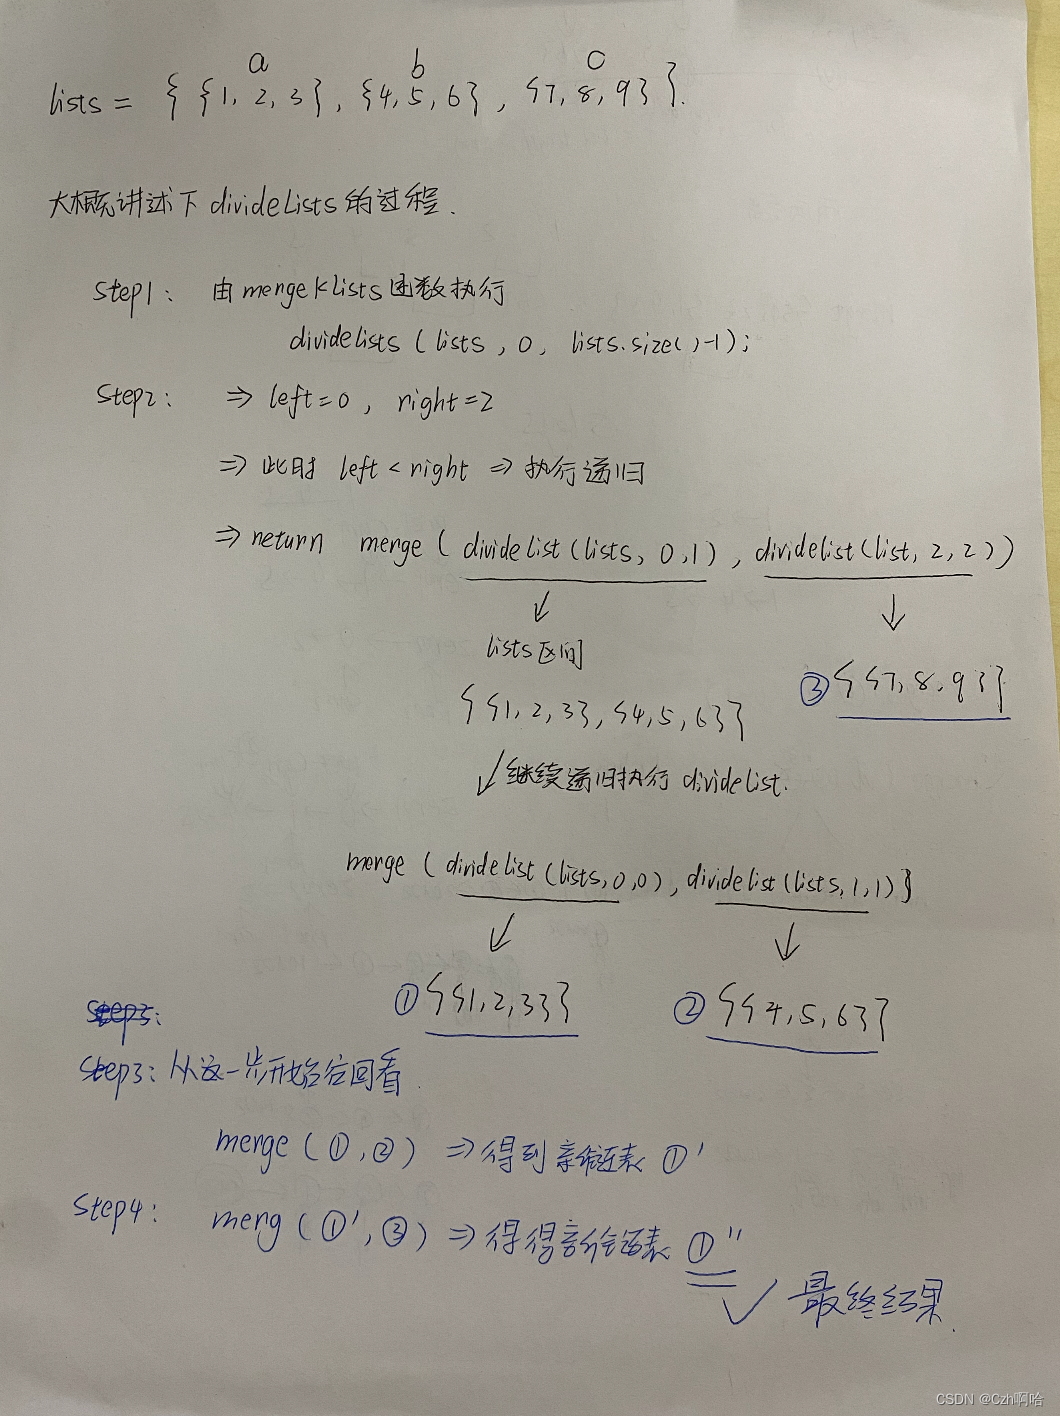 a b c
lists = { {1, 2, 3}, {4, 5, 6}, {7, 8, 9} }.
大概讲述下 divideLists 的过程.
Step1: 由 mergeKlists 函数执行
dividelists (lists, 0, lists.size()-1);
Step2: ⇒ left=0, right=2
⇒ 此时 left < right ⇒ 执行递归
⇒ return merge ( dividelist (lists, 0,1), dividelist (list, 2, 2))
↙ ↓
lists区间
{ {1, 2, 3}, {4, 5, 6} } ③ { {7, 8, 9} }
↙ 继续递归执行 dividelist.
merge ( dividelist (lists,0,0), dividelist (lists,1,1)}
↙ ↓
① { {1,2,3} } ② { {4, 5, 6} }
Step3: 从这一步开始往回看.
merge (①,②) ⇒ 得到新链表 ①'
Step4: merg (①',③) ⇒ 得得新链表 ①''
✓ 最终结果.
CSDN @Czh啊哈